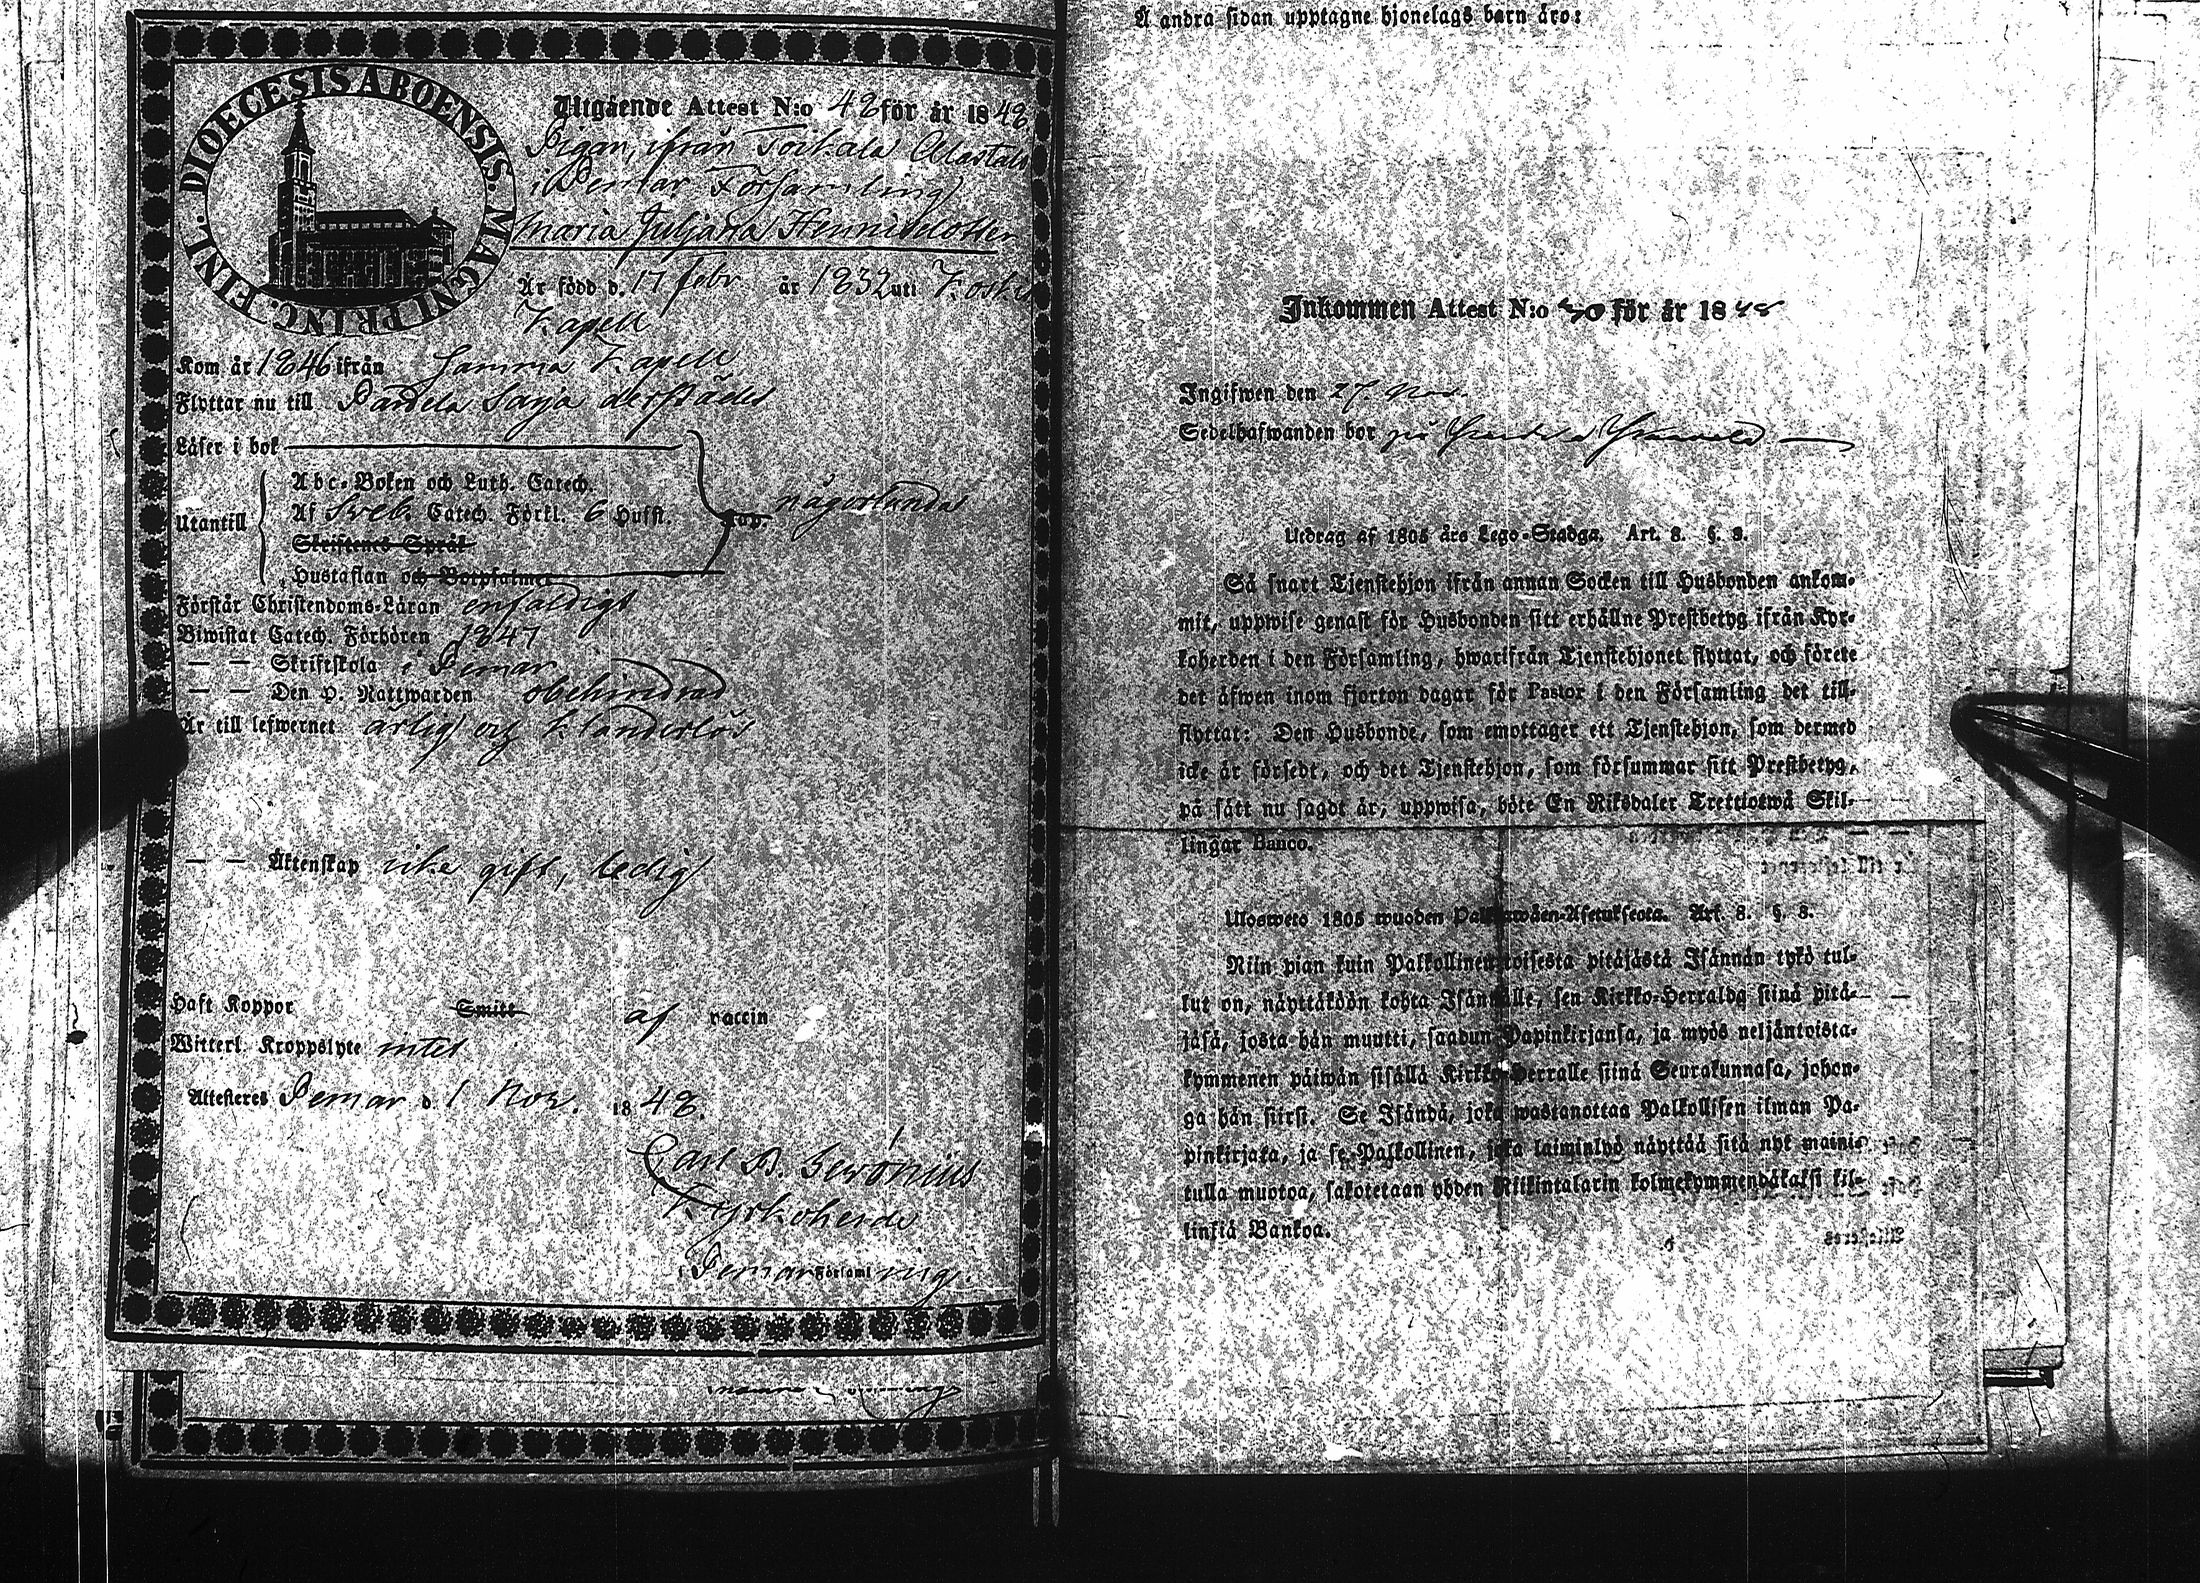 DIOECESIS ABOENSIS. MAGNI PRINC. FINL.
Utgående Attest N:o 48 för år 1848
Pigan, ifrån Toikala Alastalo
i Pemar Församling
Maria Juljana Henriksdotter
Är född d. 17 Febr år 1832 uti Koskis
Kapell
Kom år 1846 ifrån Samma Kapell
Flyttar nu till derstädes
Läser i bok
Utantill
Abc-Boken och Luth. Catech.
Af Sveb. Catech. Förkl. 6 Hufst.
Skriftens Språk
Hustaflan och Botpsalmer
någorlunda
Förstår Christendoms-Läran enfaldigt
Biwistat Catech. Förhören 1847
— — Skriftskola i Pemar
— — Den H. Nattwarden obehindrad
Är till lefwernet ärlig och klanderlös
— — Äktenskap icke gift, ledig
Haft Koppor Smitt af vaccin
Witterl. Kroppslyte intet
Attesteres Pemar d. 1 Nov. 1848.
Carl
Kyrkoherde
i Pemar Församling.
Å andra sidan upptagne hjonelags barn äro:
Inkommen Attest N:o 40 för år 1848
Ingifwen den 27. Nov.
Sedelhafwanden bor på
Utdrag af 1805 års Lego-Stadga. Art. 8. §. 8.
Så snart Tjenstehjon ifrån annan Socken till Husbonden ankom-
mit, uppwise genast för Husbonden sitt erhållne Prestbetyg ifrån Kyr-
koherden i den Församling, hwarifrån Tjenstehjonet flyttat, och förete
det äfwen inom fjorton dagar för Pastor i den Församling det till-
flyttat: Den Husbonde, som emottager ett Tjenstehjon, som dermed
icke är försedt, och det Tjenstehjon, som försummar sitt Prestbetyg,
på sätt nu sagdt är, uppwisa, böte En Riksdaler Trettiotwå Skil-
lingar Banco.
Ulosweto 1805 wuoden Palkkawäen-Asetuksesta. Art. 8. §. 8.
Niin pian kuin Palkollinen toisesta pitäjästä Isännän tykö tul-
lut on, näyttäköön kohta Isännälle, sen Kirkko-Herralda siinä pitä-
jäsä, josta hän muutti, saadun Papinkirjansa, ja myös neljäntoista-
kymmenen päiwän sisällä Kirkko-Herralle siinä Seurakunnasa, johon-
ga hän siirsi. Se Isändä, joka wastanottaa Palkollisen ilman Pa-
pinkirjata, ja se Palkollinen, joka laiminlyö näyttää sitä nyt maini-
tulla muotoa, sakotetaan yhden Riikintalarin kolmekymmendäkaksi kil-
linkiä Bankoa.